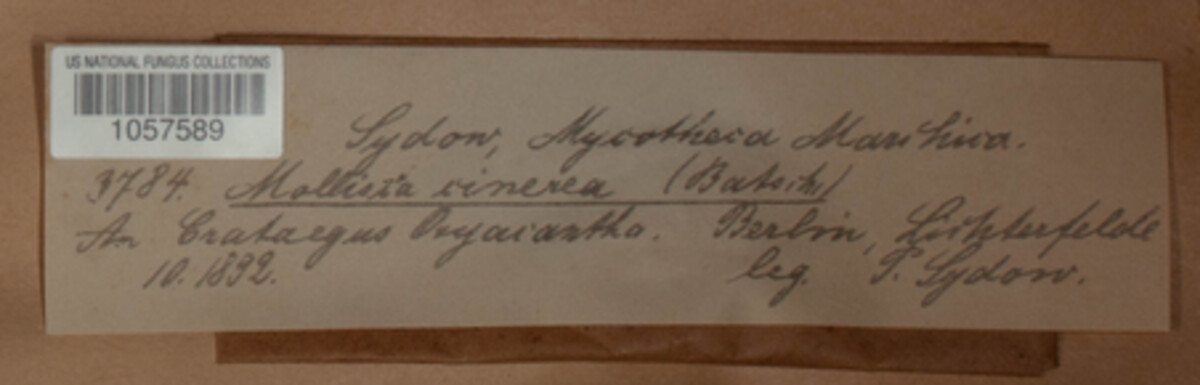 US NATIONAL FUNGUS COLLECTIONS
1057589
Sydow, Mycotheca Marchica.
3784. Mollisia cinerea (Batsch)
An Crataegus Oxyacantha. Berlin, Lichterfelde
10. 1892. leg. P. Sydow.